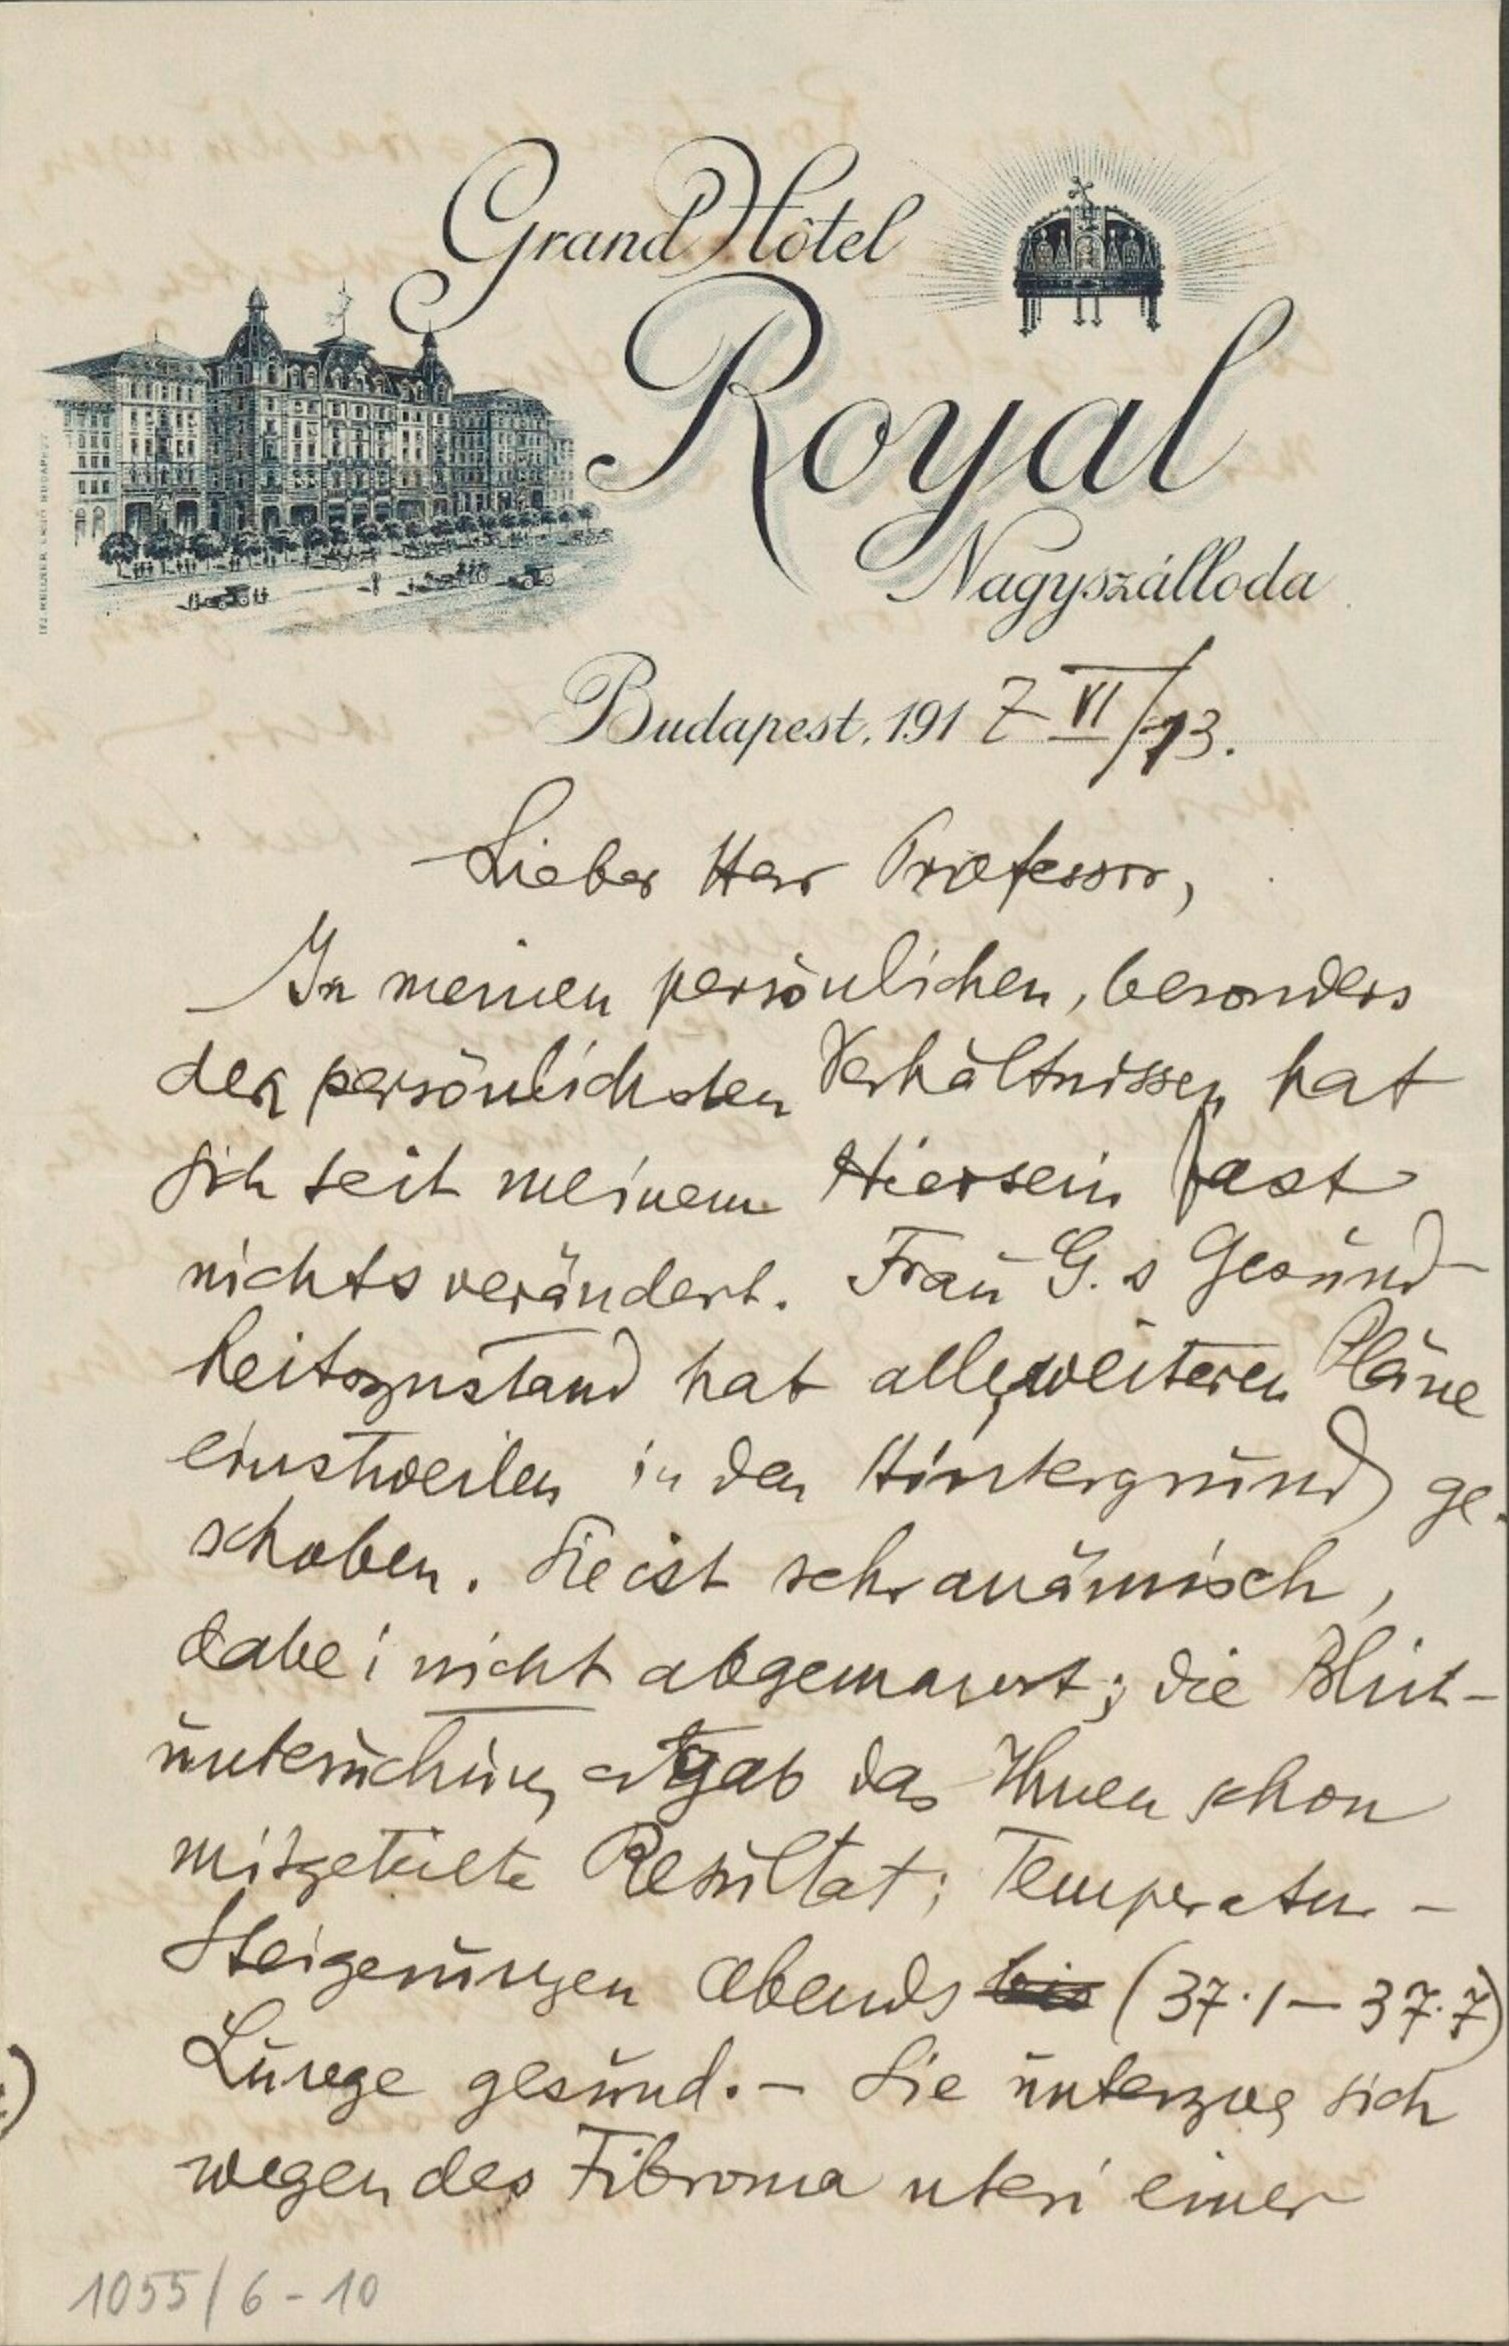 Grand Hôtel
Royal
Nagyszálloda
Budapest, 1917 VI/13.
Lieber Herr Professor,
In meinen persönlichen, besonders
den persönlichsten Verhältnissen hat
sich seit meinem Hiersein fast
nichts verändert. Frau G.s Gesund-
heitszustand hat alle weiteren Pläne
einstweilen in den Hintergrund ge-
schoben. Sie ist sehr anämisch,
dabei nicht abgemagert; die Blut-
untersuchung ergab das Ihnen schon
mitgeteilte Resultat; Temperatur-
Steigerungen abends bis (37.1–37.7)
Lunge gesund. – Sie unterzog sich
wegen des Fibroma uteri einer
1055/6-10